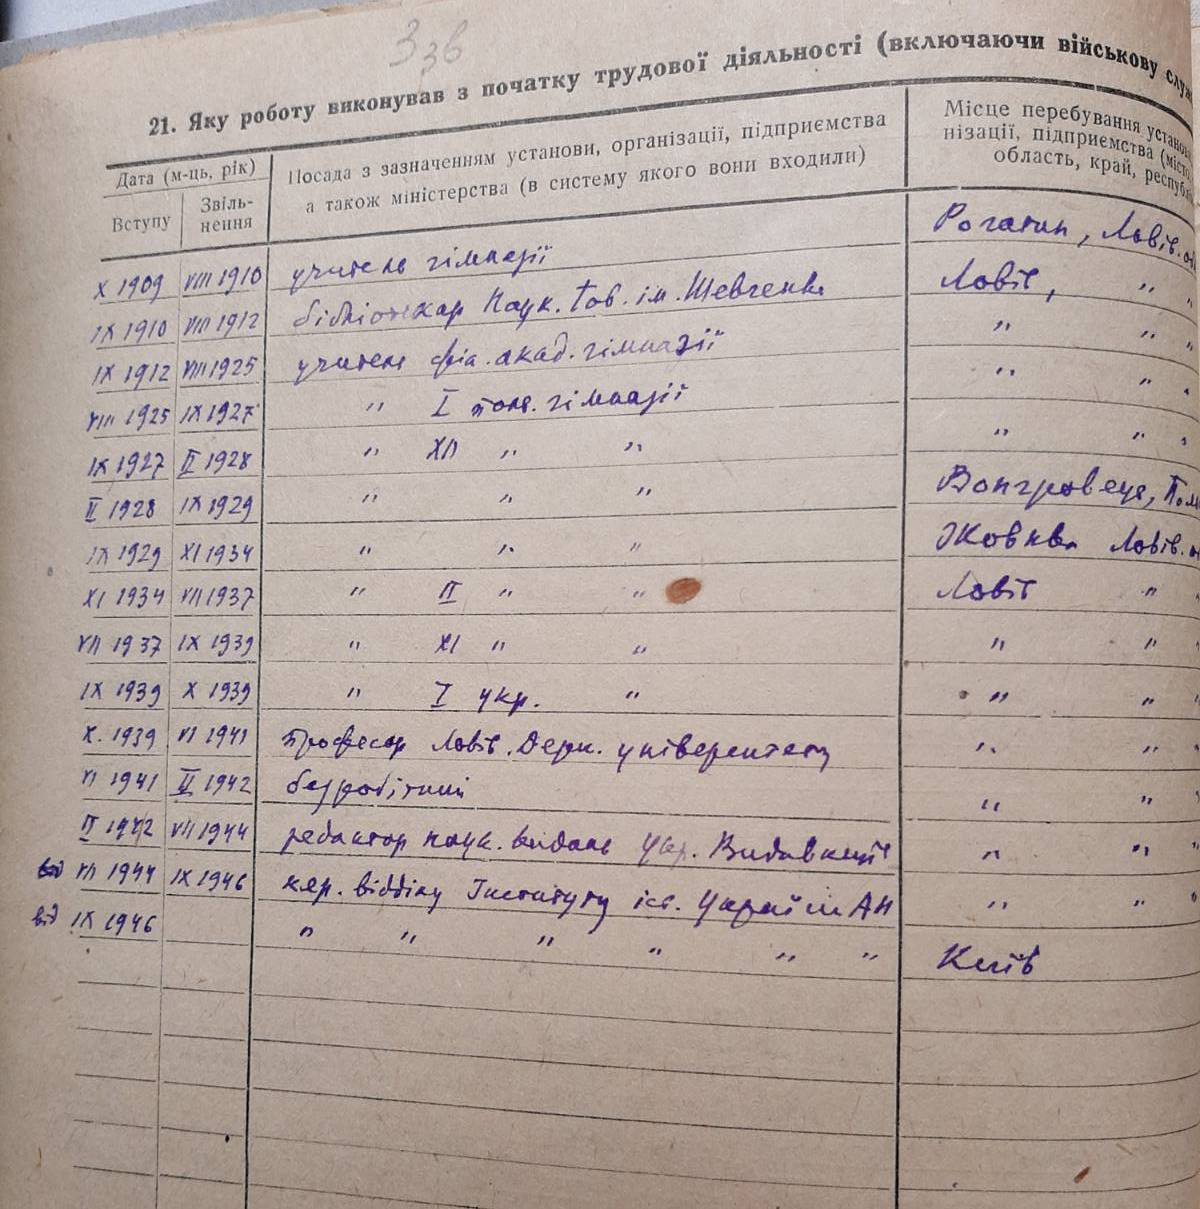 3зв
21. Яку роботу виконував з початку трудової діяльності (включаючи військову служ
Дата (м-ць, рік)
Вступу
Звіль-
нення
Посада з зазначенням установи, організації, підприємства
а також міністерства (в систему якого вони входили)
Місце перебування установ
нізації, підприємства (місто
область, край, республ
X 1909 VIII 1910 учитель гімназії Рогатин, Львів. об
IX 1910 VIII 1912 бібліотекар Наук. Тов. ім. Шевченка Львів, " "
IX 1912 VIII 1925 учитель філ. акад. гімназії " " "
VIII 1925 IX 1927 " I пол. гімназії " " "
IX 1927 II 1928 " XII " " " " "
II 1928 IX 1929 " " " Вонгровец, Пол
IX 1929 XI 1934 " " " Жовква Львів. о
XI 1934 VII 1937 " II " " Львів " "
VII 1937 IX 1939 " XI " " " " "
IX 1939 X 1939 " I укр. " " " "
X. 1939 VI 1941 професор Львів. Держ. університету " " "
VI 1941 II 1942 безробітний " " "
II 1942 VII 1944 редактор наук. видань Укр. Видавництв " " "
VII 1944 IX 1946 кер. відділу Інституту іст. України АН " " "
від IX 1946 " " " " " " Київ